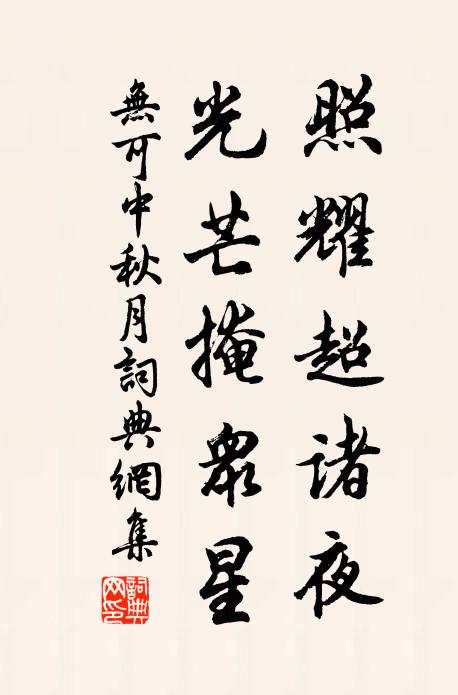 照耀超諸夜
光芒掩衆星
無可中秋月詞典網集
詞典網印